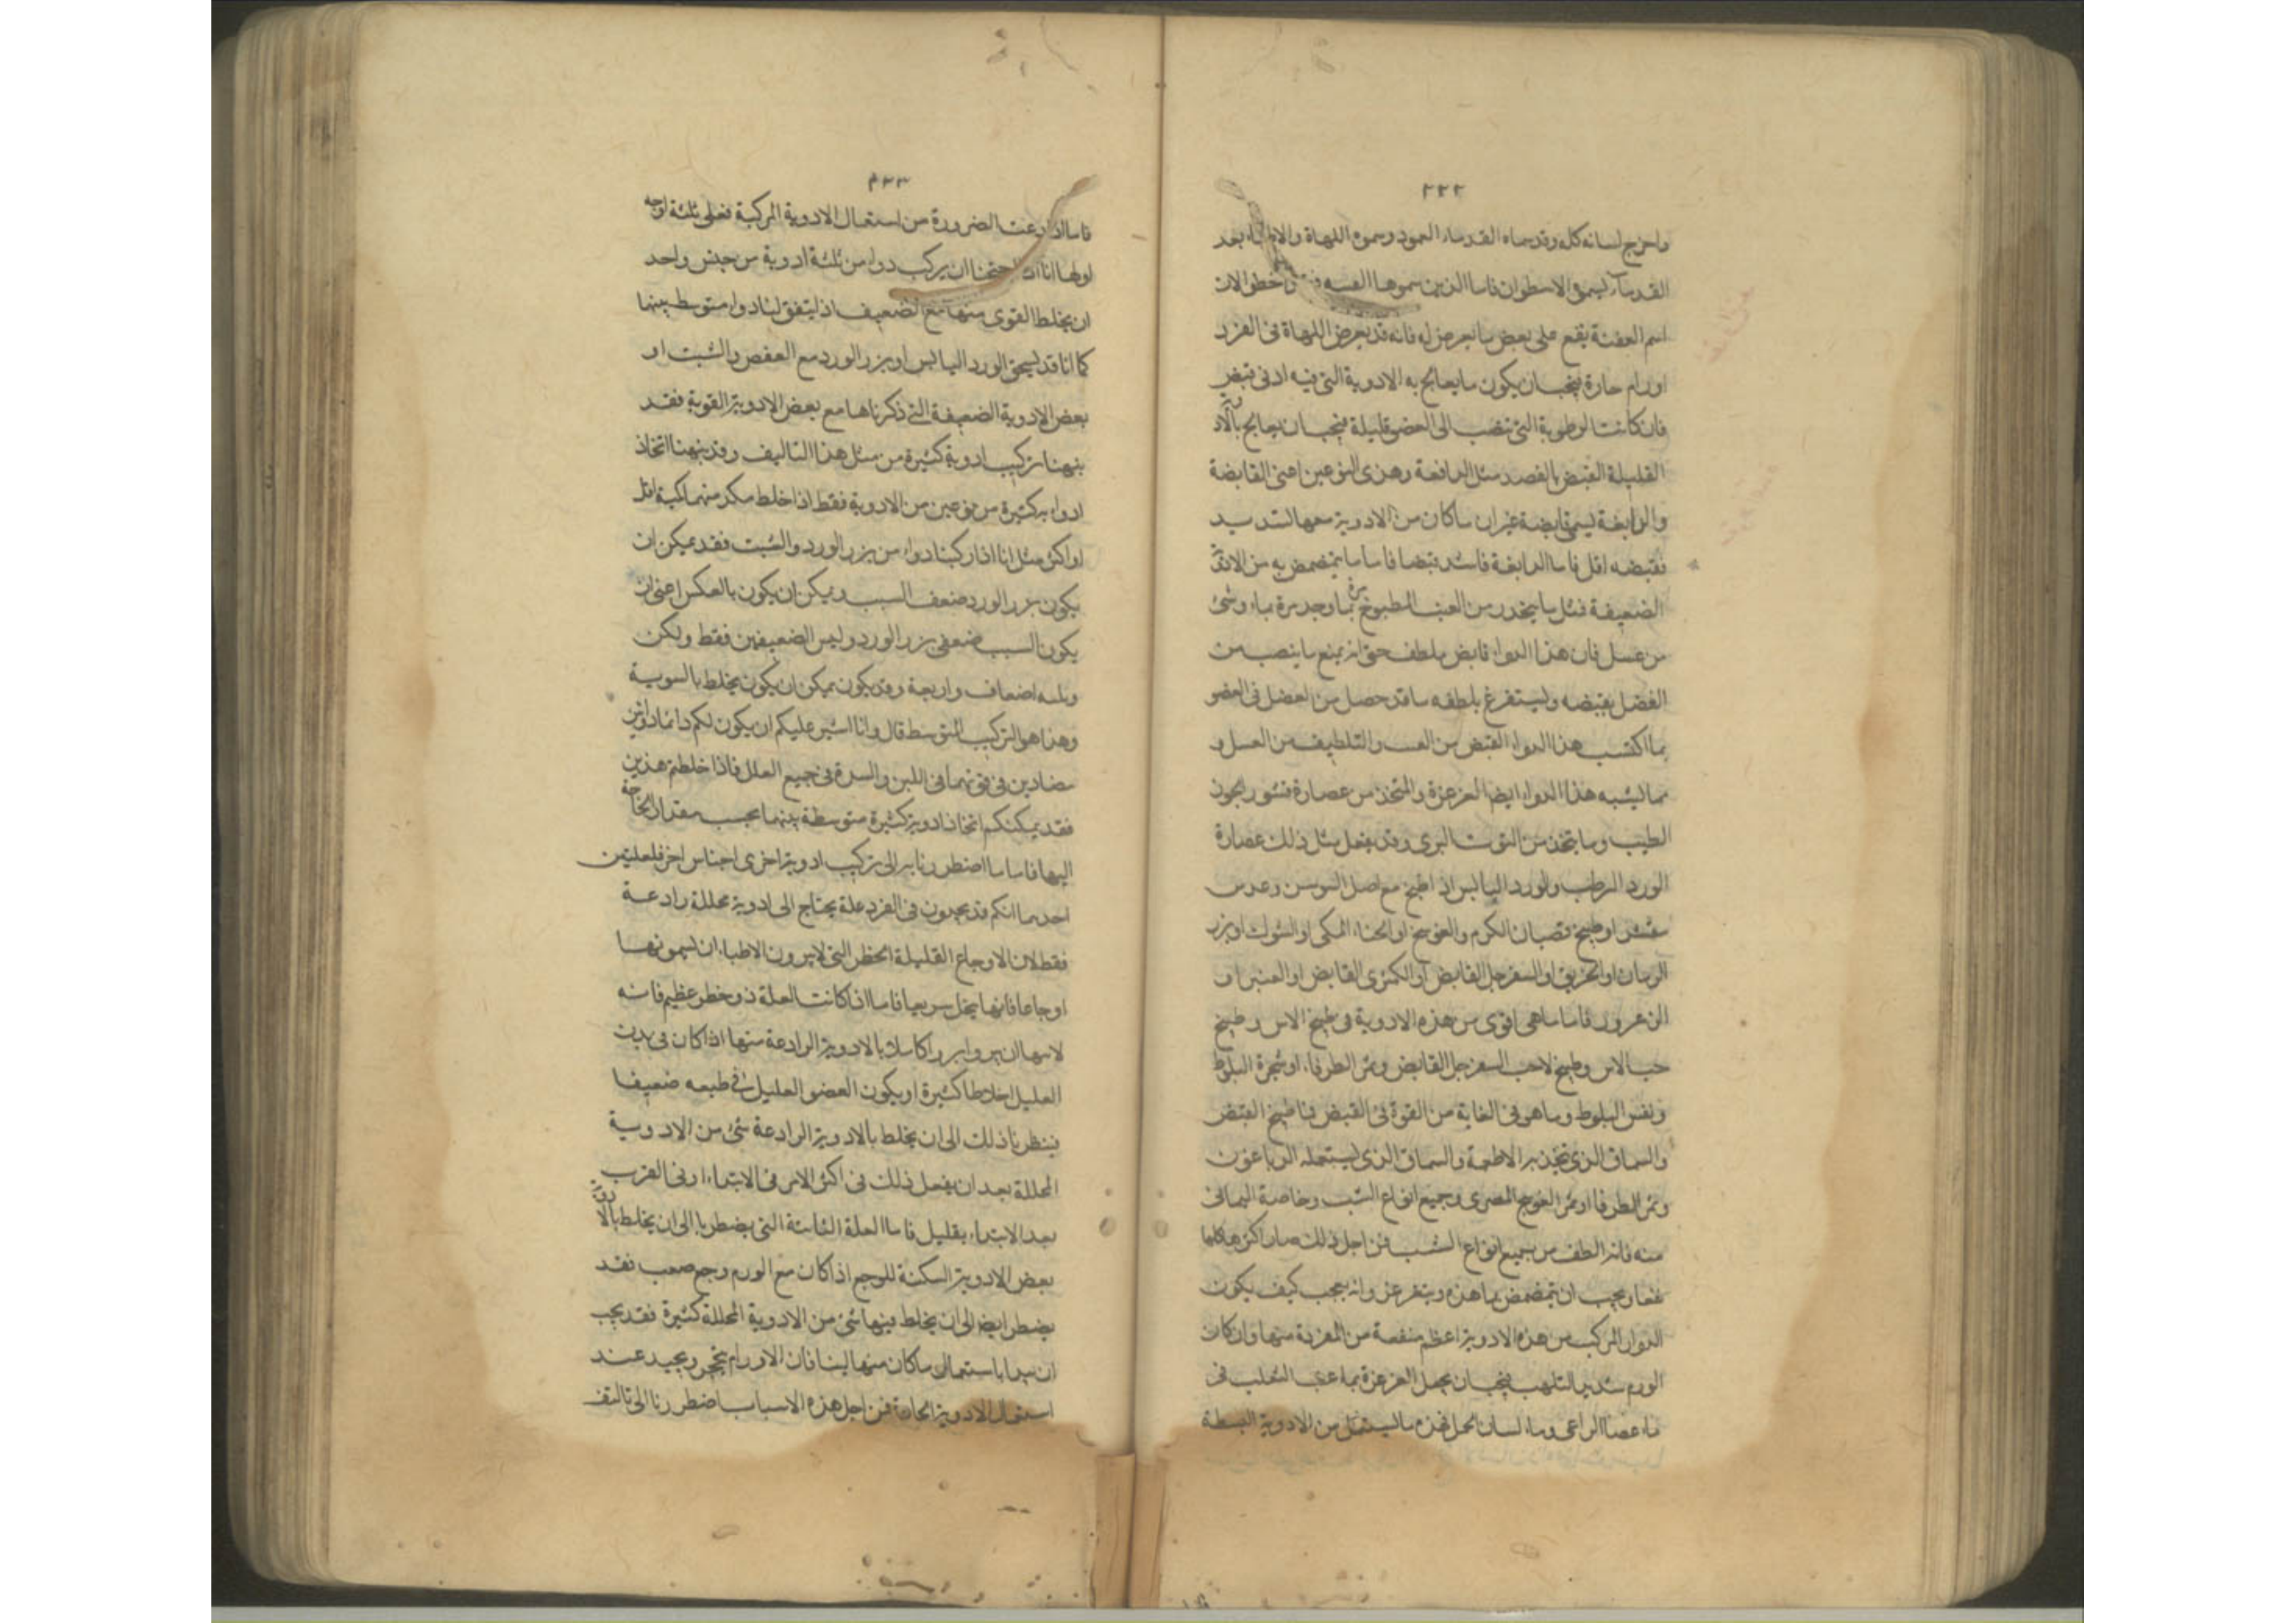 ٢٢٢
واخرج لسانه كله وقد سماه القدماء العمود وسموه اللهاة والاطباء بعد
القدماء يسمى الاسطوان فاما الذين سموها العنبه
اسم العنبة يقع على بعض ما يعرض له فانه قد يعرض اللهاة فى الفرد
اورام حارة فيجب ان يكون ما يعالج به الادوية التى فيه ادنى قبض
فان كانت الرطوبة التى تنصب الى العضو قليلة فيجب ان يعالج بالادوية
القليلة القبض بالقصد مثل الرافعة وهذى النوعين اعنى القابضة
والرابغة ليسمى قابضة غير ان ما كان من الادوية معها لتدسيد
فقبضه اقل فاما الدابغة فاشد قبضا فاما ما يتمضمض به من الادوية
الضعيفة فمثل ما يتخذ من العنب المطبوخ مرة بماء وحد مرة بماء وشئ
من عسل فان هذا الدواء قابض ملطف حتى انه يمنع ما ينصب من
الفضل بقبضه ويستفرغ بلطفه ما قد حصل من الفضل فى العضو
بما اكتسب هذا الدواء القبض من العنب والتلطيف من العسل و
مما يشبه هذا الدواء ايضا الغرغرة والمتخذ من عصارة قشور الجوز
الطيب وما يتخذ من التوث البرى وقد يفعل مثل ذلك عصارة
الورد الرطب والورد اليابس اذا طبخ مع اصل السوسن وعدس
مقشر او طبيخ قضبان الكرم والعوسج او الحناء المكى او الشوك او بزر
الرمان او الخرنوب او السفرجل القابض او الكمثرى القابض او الغبيرا و
الزعرور فاما ما هى اقوى من هذه الادوية فى طبيخ الاس وطبيخ
حب الاس وطبيخ لاحب السفرجل القابض وثمر الطرفاء او شجرة البلوط
ونفس البلوط وما هو فى الغاية من القوة فى القبض فماء طبيخ العفص
والسماق الذى تتخذ به الاطعمة والسماق الذى يستعمله الدباغون
وثمر الطرفا او ثمر العوسج المصرى وجميع انواع الشب وخاصة اليمانى
منه فانه الطف من جميع انواع الشب فمن اجل ذلك صار اكثرها كلها
نفعا ويجب ان يتمضمض بماء هذه ويتغرغر وانه يعجب كيف يكون
الدواء المركب من هذه الادوية اعظم منفعة من المفردة منها وان كان
الورم شديد التلهب فيجب ان يجعل الغرغرة بماء عنب الثعلب فى
ماء عصا الراعى وماء لسان الحمل فهذه ما يستعمل من الادوية البسيطة
٢٢٣
فاما اذا دعت الضرورة من استعمال الادوية المركبة فعلى ثلثة اوجه
اولها انا اذا احتجنا ان يركب دواء من ثلثة ادوية من جنس واحد
ان يخلط القوى منها مع الضعيف اذ ليتفق لنا دواء متوسط بينهما
كما انا قد يسحق الورد اليابس او بزر الورد مع العفص والشبت او
بعض الادوية الضعيفة التى ذكرناها مع بعض الادوية القوية فقد
يتهيأ تركيب ادوية كثيرة من مثل هذا التاليف وقد يتهيأ اتخاذ
ادوابه كثيرة من نوعين من الادوية فقط اذا خلط مكر منهما كمية اقل
او اكثر مثل انا اذا ركبنا دواء من بزر الورد والشبت فقد يمكن ان
يكون بزر الورد ضعف السبب ويمكن ان يكون بالعكس اعنى ان
يكون السبب ضعفى بزر الورد وليس الضعيفين فقط ولكن
وثلثه اضعاف واربعة وقد يكون يمكن ان يكون يخلط بالسوية
وهذا هو التركيب المتوسط قال وانا اشير عليكم ان يكون لكم دائما دوائين
مضادين فى قوتهما فى اللين والشدة فى جميع العلل فاذا خلطتم هذين
فقد يمكنكم اتخاذ ادوية كثيرة متوسطة بينهما بحسب مقدار الحاجة
اليها فاما ما اضطررنا به الى تركيب ادوية اخرى اجناس اخر فلعلتين
احدهما انكم قد تجدون فى الفرد علة يحتاج الى ادوية محللة رادعة
فقط لان الاوجاع القليلة الخطر التى لا يرون الاطباء ان يسمونها
اوجاعا فانها يحل سريعا فاما اذا كانت العلة ذو خطر عظيم فانه
لا يتهيأ ان يبروا برءا كاملا بالادوية الرادعة منها اذا كان فى بدن
العليل اخلاطا كثيرة او يكون العضو العليل فى طبعه ضعيفا
فيضطرنا ذلك الى ان يخلط بالادوية الرادعة شئ من الادوية
المحللة بعد ان يفعل ذلك فى اكثر الامر فى الابتداء او فى القرب
بعد الابتداء بقليل فاما العلة الثانية التى يضطر بها الى ان يخلط بالادوية
بعض الادوية المسكنة للوجع اذا كان مع الورم وجع صعب فقد
يضطر ايضا الى ان يخلط فيها شئ من الادوية المحللة كثيرة فقد يجب
ان نبدا باستعمال ما كان منها لينا فان الاورام يتحجر ويجسد عند
استعمال الادوية الحادة فمن اجل هذه الاسباب اضطررنا الى تاليف